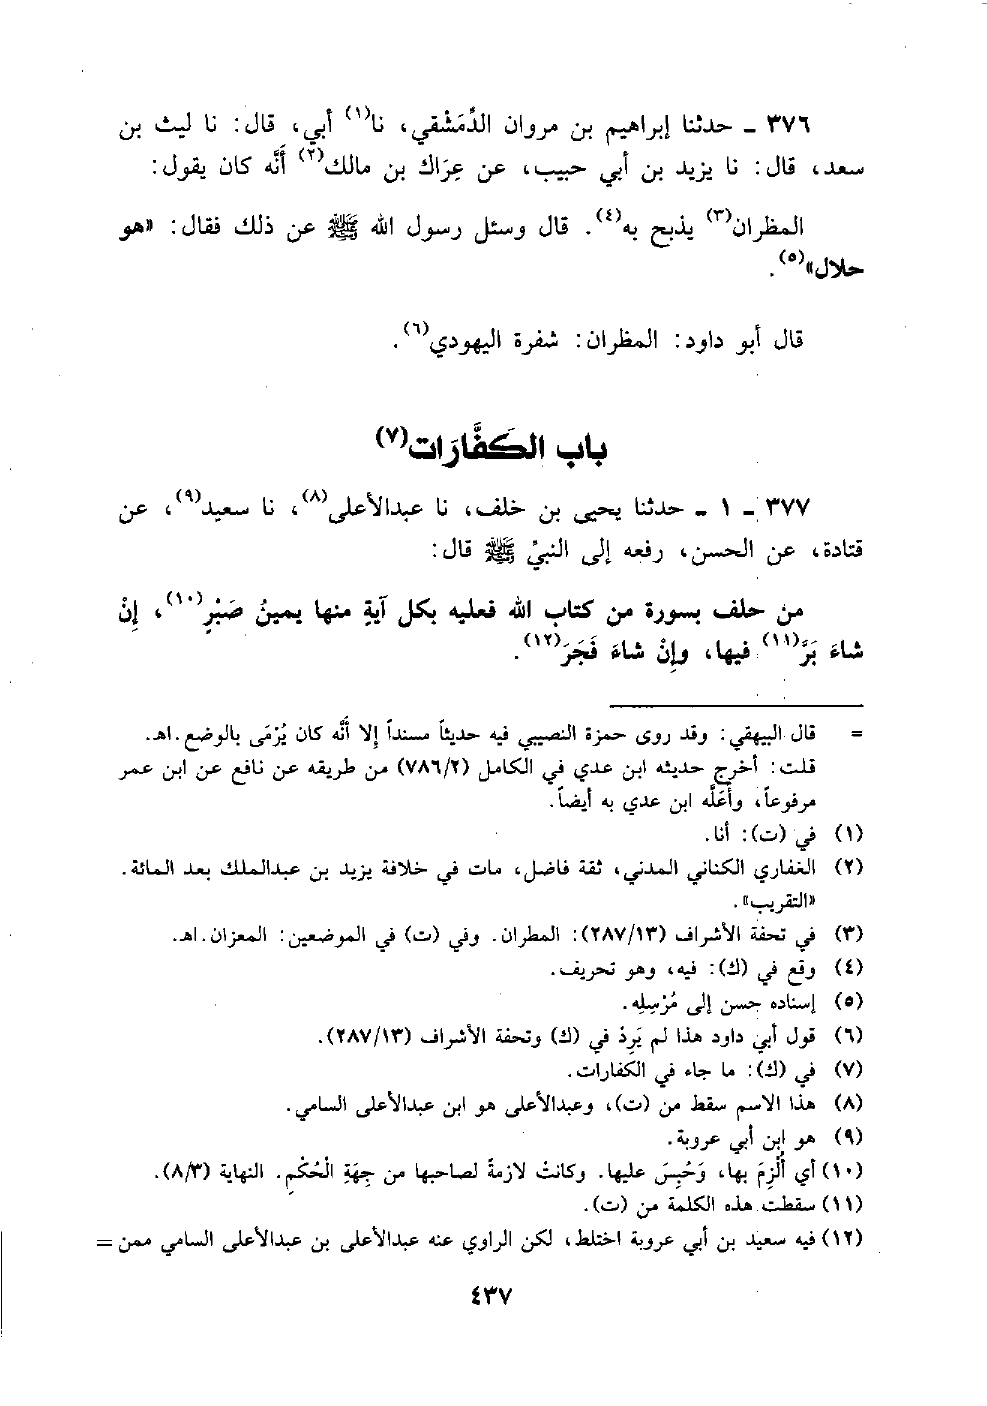 ٣٧٦ ـ حدثنا إبراهيم بن مروان الدِّمَشْقي، نا(١) أبي، قال: نا ليث بن
سعد، قال: نا يزيد بن أبي حبيب، عن عِرَاك بن مالك(٢) أنَّه كان يقول:
المظران(٣) يذبح به(٤). قال وسئل رسول الله ﷺ عن ذلك فقال: «هو
حلال»(٥).
قال أبو داود: المظران: شفرة اليهودي(٦).
باب الكفَّارَات(٧)
٣٧٧ ـ ١ ـ حدثنا يحيى بن خلف، نا عبدالأعلى(٨)، نا سعيد(٩)، عن
قتادة، عن الحسن، رفعه إلى النبيِّ ﷺ قال:
من حلف بسورة من كتاب الله فعليه بكل آيةٍ منها يمينُ صَبْرٍ(١٠)، إنْ
شاءَ بَرَّ(١١) فيها، وإنْ شاءَ فَجَرَ(١٢).
= قال البيهقي: وقد روى حمزة النصيبي فيه حديثاً مسنداً إلا أنَّه كان يُرْمَى بالوضع. اهـ.
قلت: أخرج حديثه ابن عدي في الكامل (٧٨٦/٢) من طريقه عن نافع عن ابن عمر
مرفوعاً، وأعَلَّه ابن عدي به أيضاً.
(١) في (ت): أنا.
(٢) الغفاري الكناني المدني، ثقة فاضل، مات في خلافة يزيد بن عبدالملك بعد المائة.
«التقريب».
(٣) في تحفة الأشراف (٢٨٧/١٣): المطران. وفي (ت) في الموضعين: المعزان. اهـ.
(٤) وقع في (ك): فيه، وهو تحريف.
(٥) إسناده حسن إلى مُرْسِلِه.
(٦) قول أبي داود هذا لم يَرِدْ في (ك) وتحفة الأشراف (٢٨٧/١٣).
(٧) في (ك): ما جاء في الكفارات.
(٨) هذا الاسم سقط من (ت)، وعبدالأعلى هو ابن عبدالأعلى السامي.
(٩) هو ابن أبي عروبة.
(١٠) أي أُلْزِمَ بها، وَحُبِسَ عليها. وكانتْ لازمةً لصاحبها من جِهَةِ الْحُكْمِ. النهاية (٨/٣).
(١١) سقطت هذه الكلمة من (ت).
(١٢) فيه سعيد بن أبي عروبة اختلط، لكن الراوي عنه عبدالأعلى بن عبدالأعلى السامي ممن =
٤٣٧